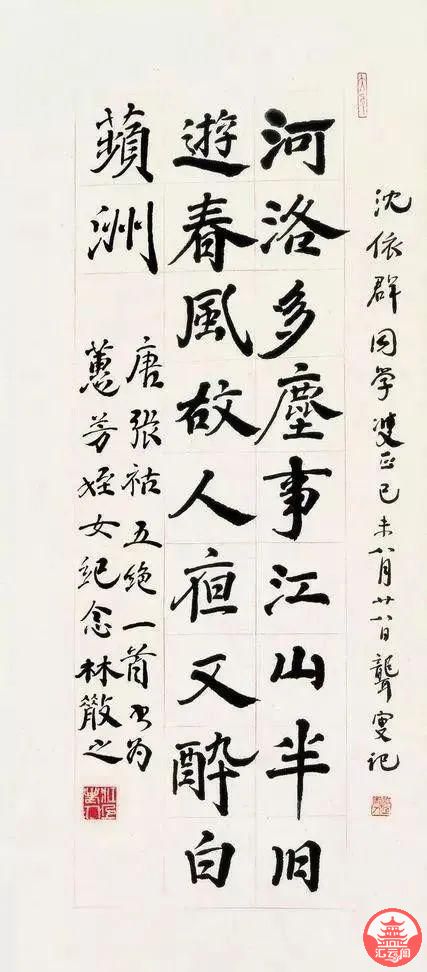 沈依群同学双正己未八月廿八日聋叟记
河洛多塵事江山半旧
遊春風故人夜又醉白
蘋洲
唐張祜五绝一首書为
蕙芳姪女紀念林散之
汇云阁